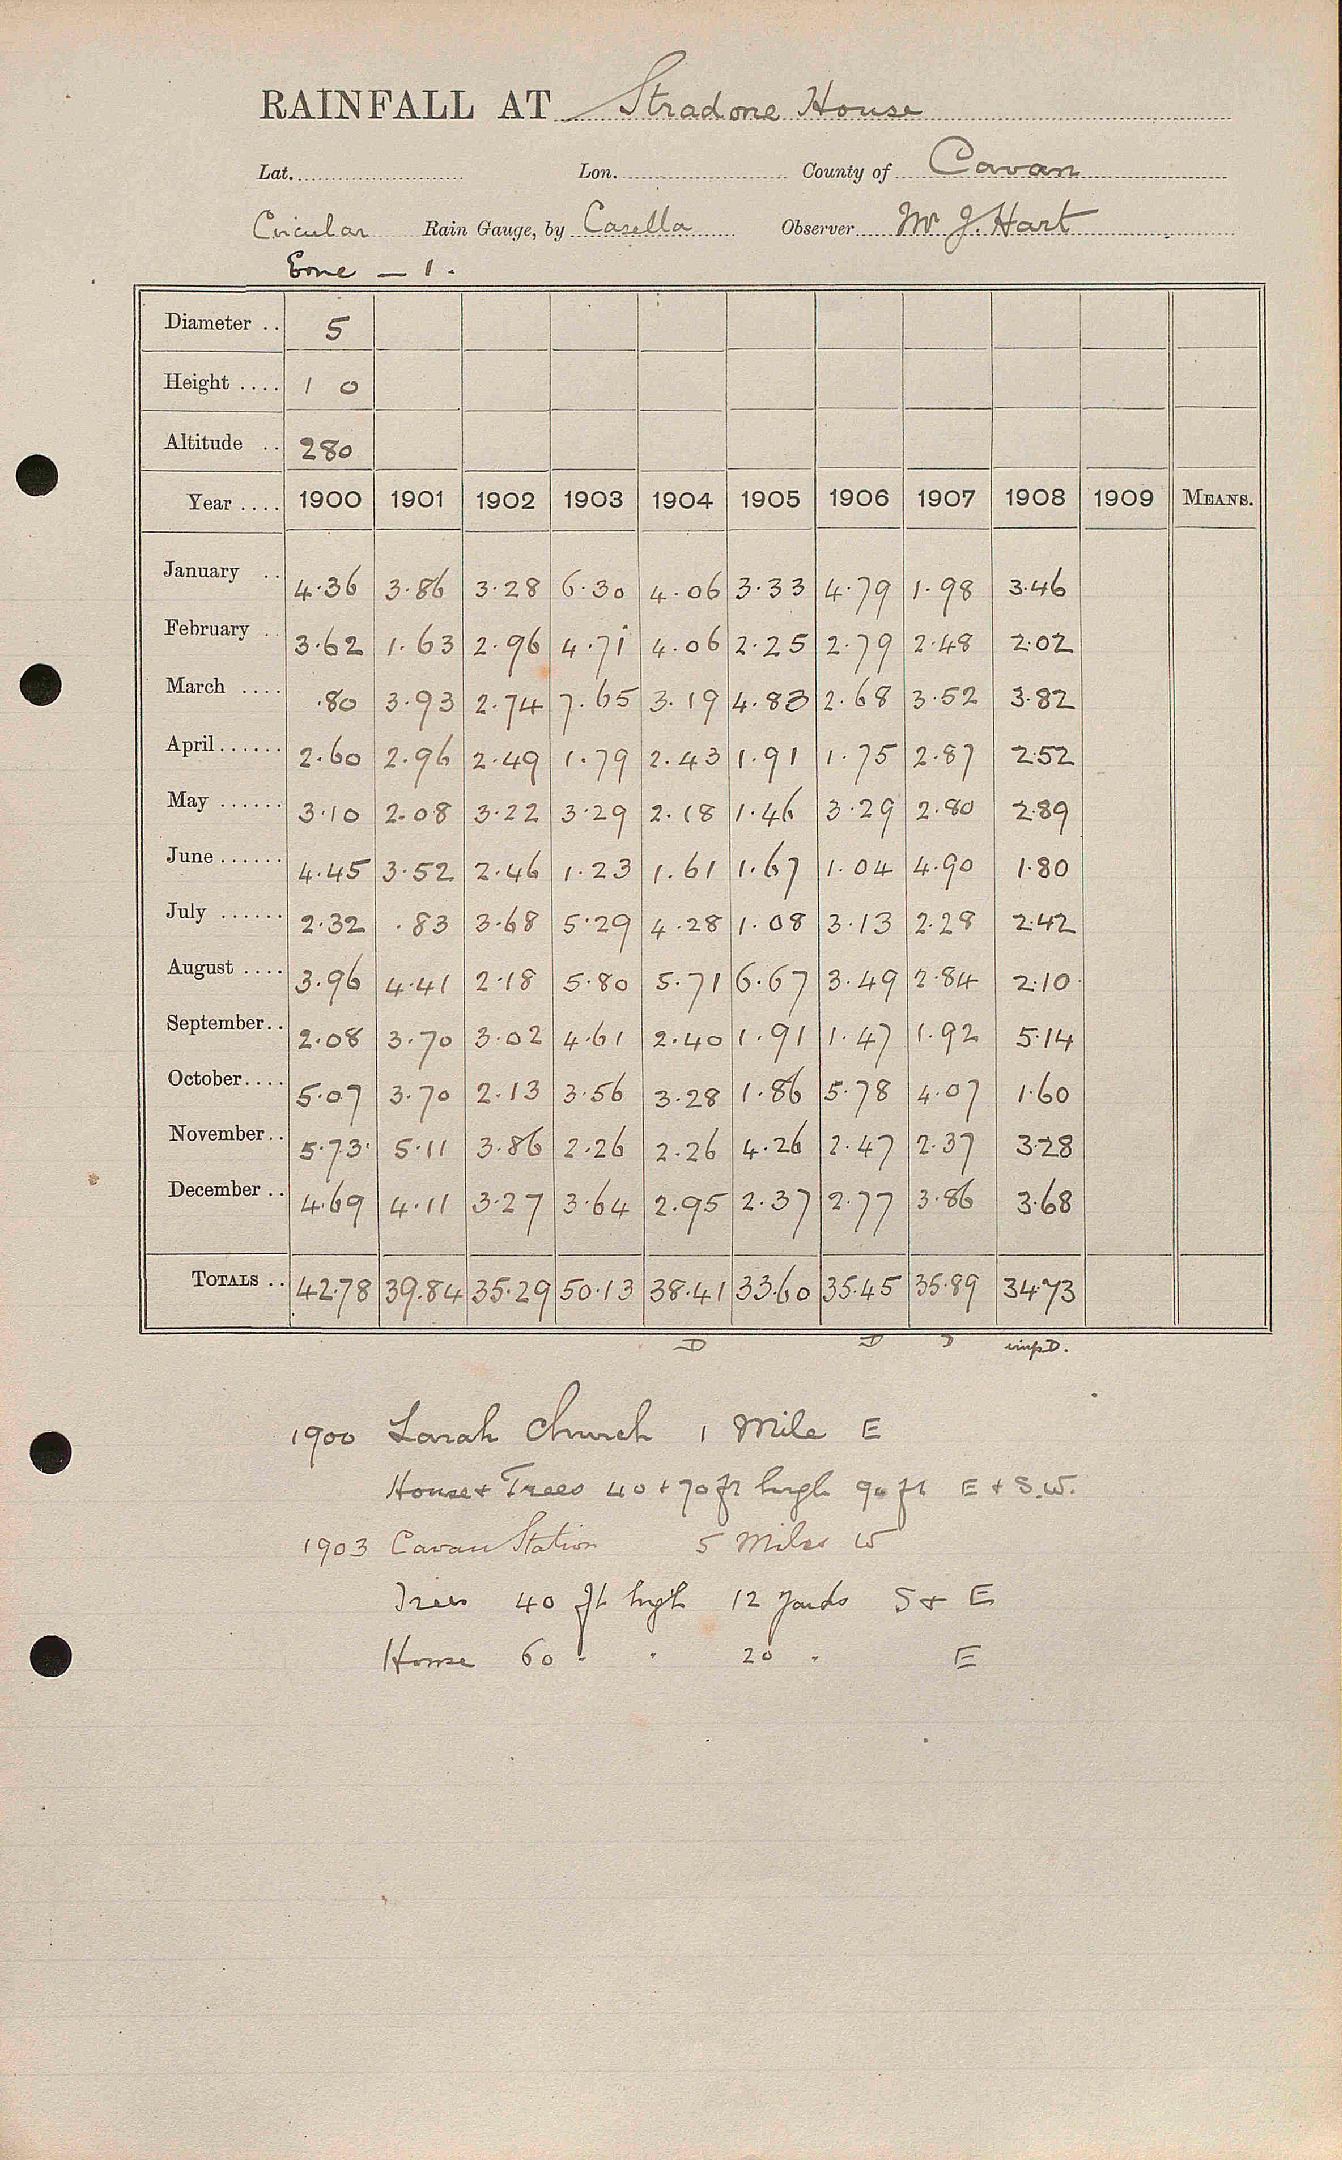 RAINFALL AT Stradone House
Lat. Lon. County of Cavan
Circular Rain Gauge, by Casella Observer Mr J. Hart
Erne — 1.
Diameter .. 5
Height .... 1 0
Altitude .. 280
Year .... 1900 1901 1902 1903 1904 1905 1906 1907 1908 1909 MEANS.
January .. 4.36 3.86 3.28 6.30 4.06 3.33 4.79 1.98 3.46
February .. 3.62 1.63 2.96 4.71 4.06 2.25 2.79 2.48 2.02
March .... .80 3.93 2.74 7.65 3.19 4.83 2.68 3.52 3.82
April ...... 2.60 2.96 2.49 1.79 2.43 1.91 1.75 2.87 2.52
May ...... 3.10 2.08 3.22 3.29 2.18 1.46 3.29 2.80 2.89
June ...... 4.45 3.52 2.46 1.23 1.61 1.67 1.04 4.90 1.80
July ...... 2.32 .83 3.68 5.29 4.28 1.08 3.13 2.28 2.42
August .... 3.96 4.41 2.18 5.80 5.71 6.67 3.49 2.84 2.10
September .. 2.08 3.70 3.02 4.61 2.40 1.91 1.47 1.92 5.14
October .... 5.07 3.70 2.13 3.56 3.28 1.86 5.78 4.07 1.60
November .. 5.73 5.11 3.86 2.26 2.26 4.26 2.47 2.37 3.28
December .. 4.69 4.11 3.27 3.64 2.95 2.37 2.77 3.86 3.68
TOTALS .. 42.78 39.84 35.29 50.13 38.41 33.60 35.45 35.89 34.73
D D D impD.
1900 Larah Church 1 Mile E
House + Trees 40 + 70 ft high 90 ft E + S.W.
1903 Cavan Station 5 Miles W
Trees 40 ft high 12 yards S + E
House 60 " " 20 " E